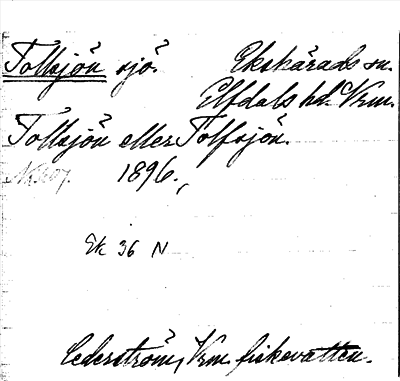 Tolksjön sjö. Ekshärads sn.
Elfdals hd. Vrm.
Tolksjön eller Tolfsjön.
1896.
Ek 36 N
Cederström, Vrm. fiskevatten.